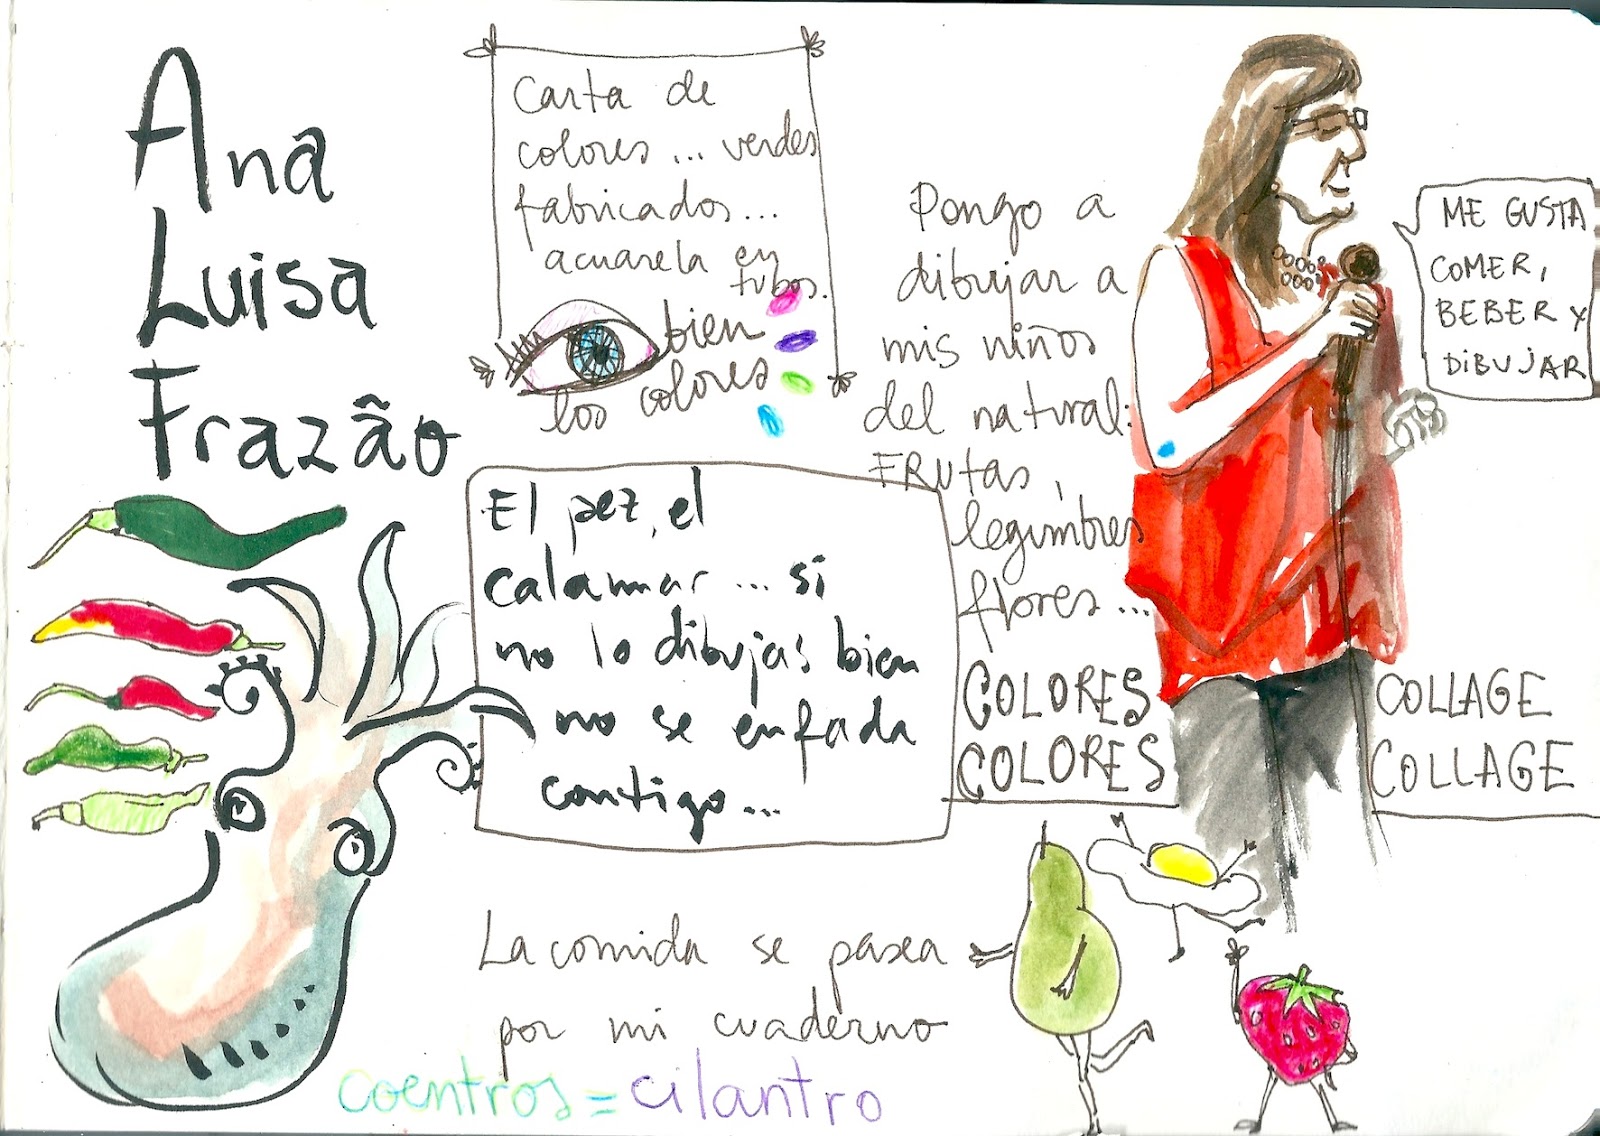 Ana
Luisa
Frazão
Carta de
colores ... verdes
fabricados...
acuarela en
tubos.
bien
los colores
El pez, el
calamar ... si
no lo dibujas bien
no se enfada
contigo...
Pongo a
dibujar a
mis niños
del natural:
FRUtas,
legumbres
flores...
COLORES
COLORES
ME GUSTA
COMER,
BEBER Y
DIBUJAR
COLLAGE
COLLAGE
La comida se pasea
por mi cuaderno
coentros = cilantro